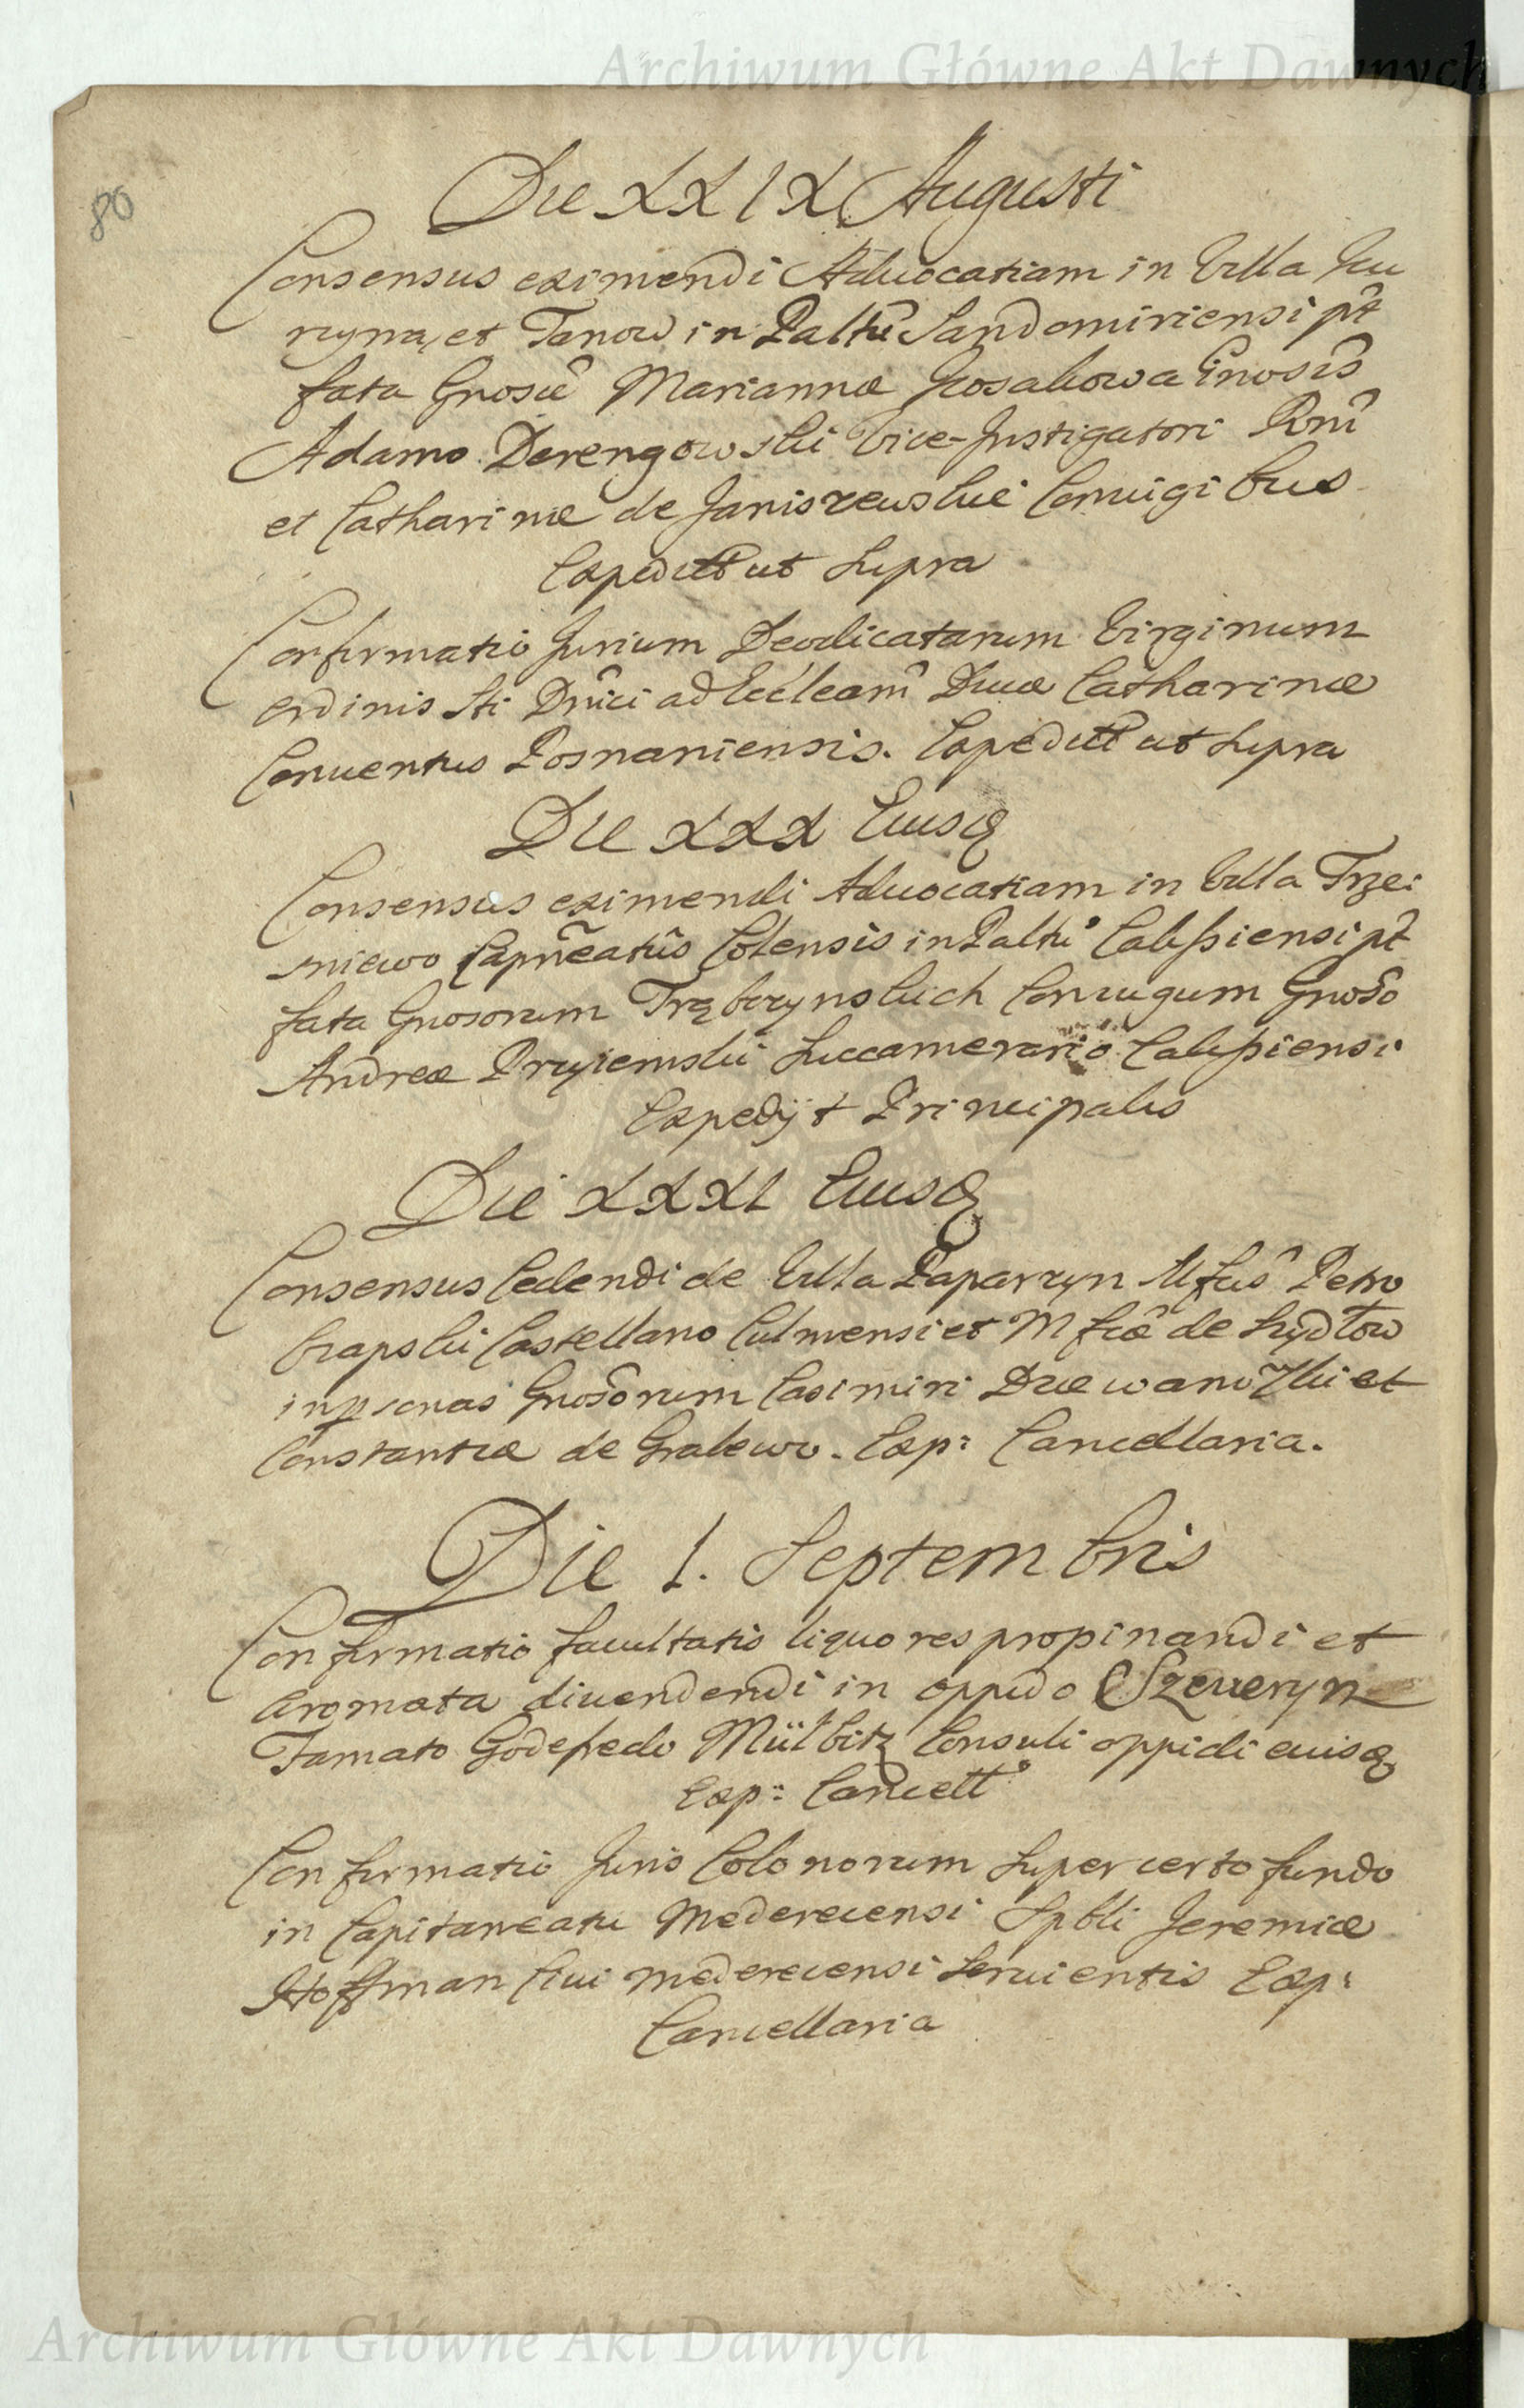 Archiwum Główne Akt Dawnych
80
Die XXIX Augusti
Consensus eximendi Advocatiam in Villa Hu
czyna, et Tanow in Paltũ Sandomiriensi pt
fata Gnosæ Mariannæ Kossakowa Gnosis
Adamo Derengowski Vice-Instigatori Rni
et Catharinæ de Janiszewskie Coniugibus
Expeditt ut supra
Confirmatio Jurium Deodicatarum Virginum
ordinis Sti Dnici ad Eccleam Divæ Catharinæ
Conventus Posnaniensis. Expeditt ut supra
Die XXX Eiusq
Consensus eximendi Advocatiam in Villa Trze:
sniewo Capneatus Colensis in Paltu Calissiensi pt
fata Gnosorum Trąbczynskich Coniugum Gnoso
Andreæ Przyiemski Succamerario Calissiensi
Expedijt Principalis
Die XXXI Eiusq
Consensus Cedendi de Villa Paparzyn Mfcus Petro
Czapski Castellano Culmensi et Mfcæ de
in psonas Gnosorum Casimiri et
Constantiæ de Gralewo. Exp: Cancellaria.
Die 1. Septembris
Confirmatio facultatis liquores propinandi et
aromata divendendi in oppido Szczeweryn
Famato Godefredo Müllbitz Consuli oppidi eiusq
Exp: Cancell
Confirmatio Juris Colonorum super certo fundo
in Capitaneatu Mederecensi Spbli Jeremiæ
Hoffman Civi Mederecensi servientis Exp:
Cancellaria
Archiwum Główne Akt Dawnych